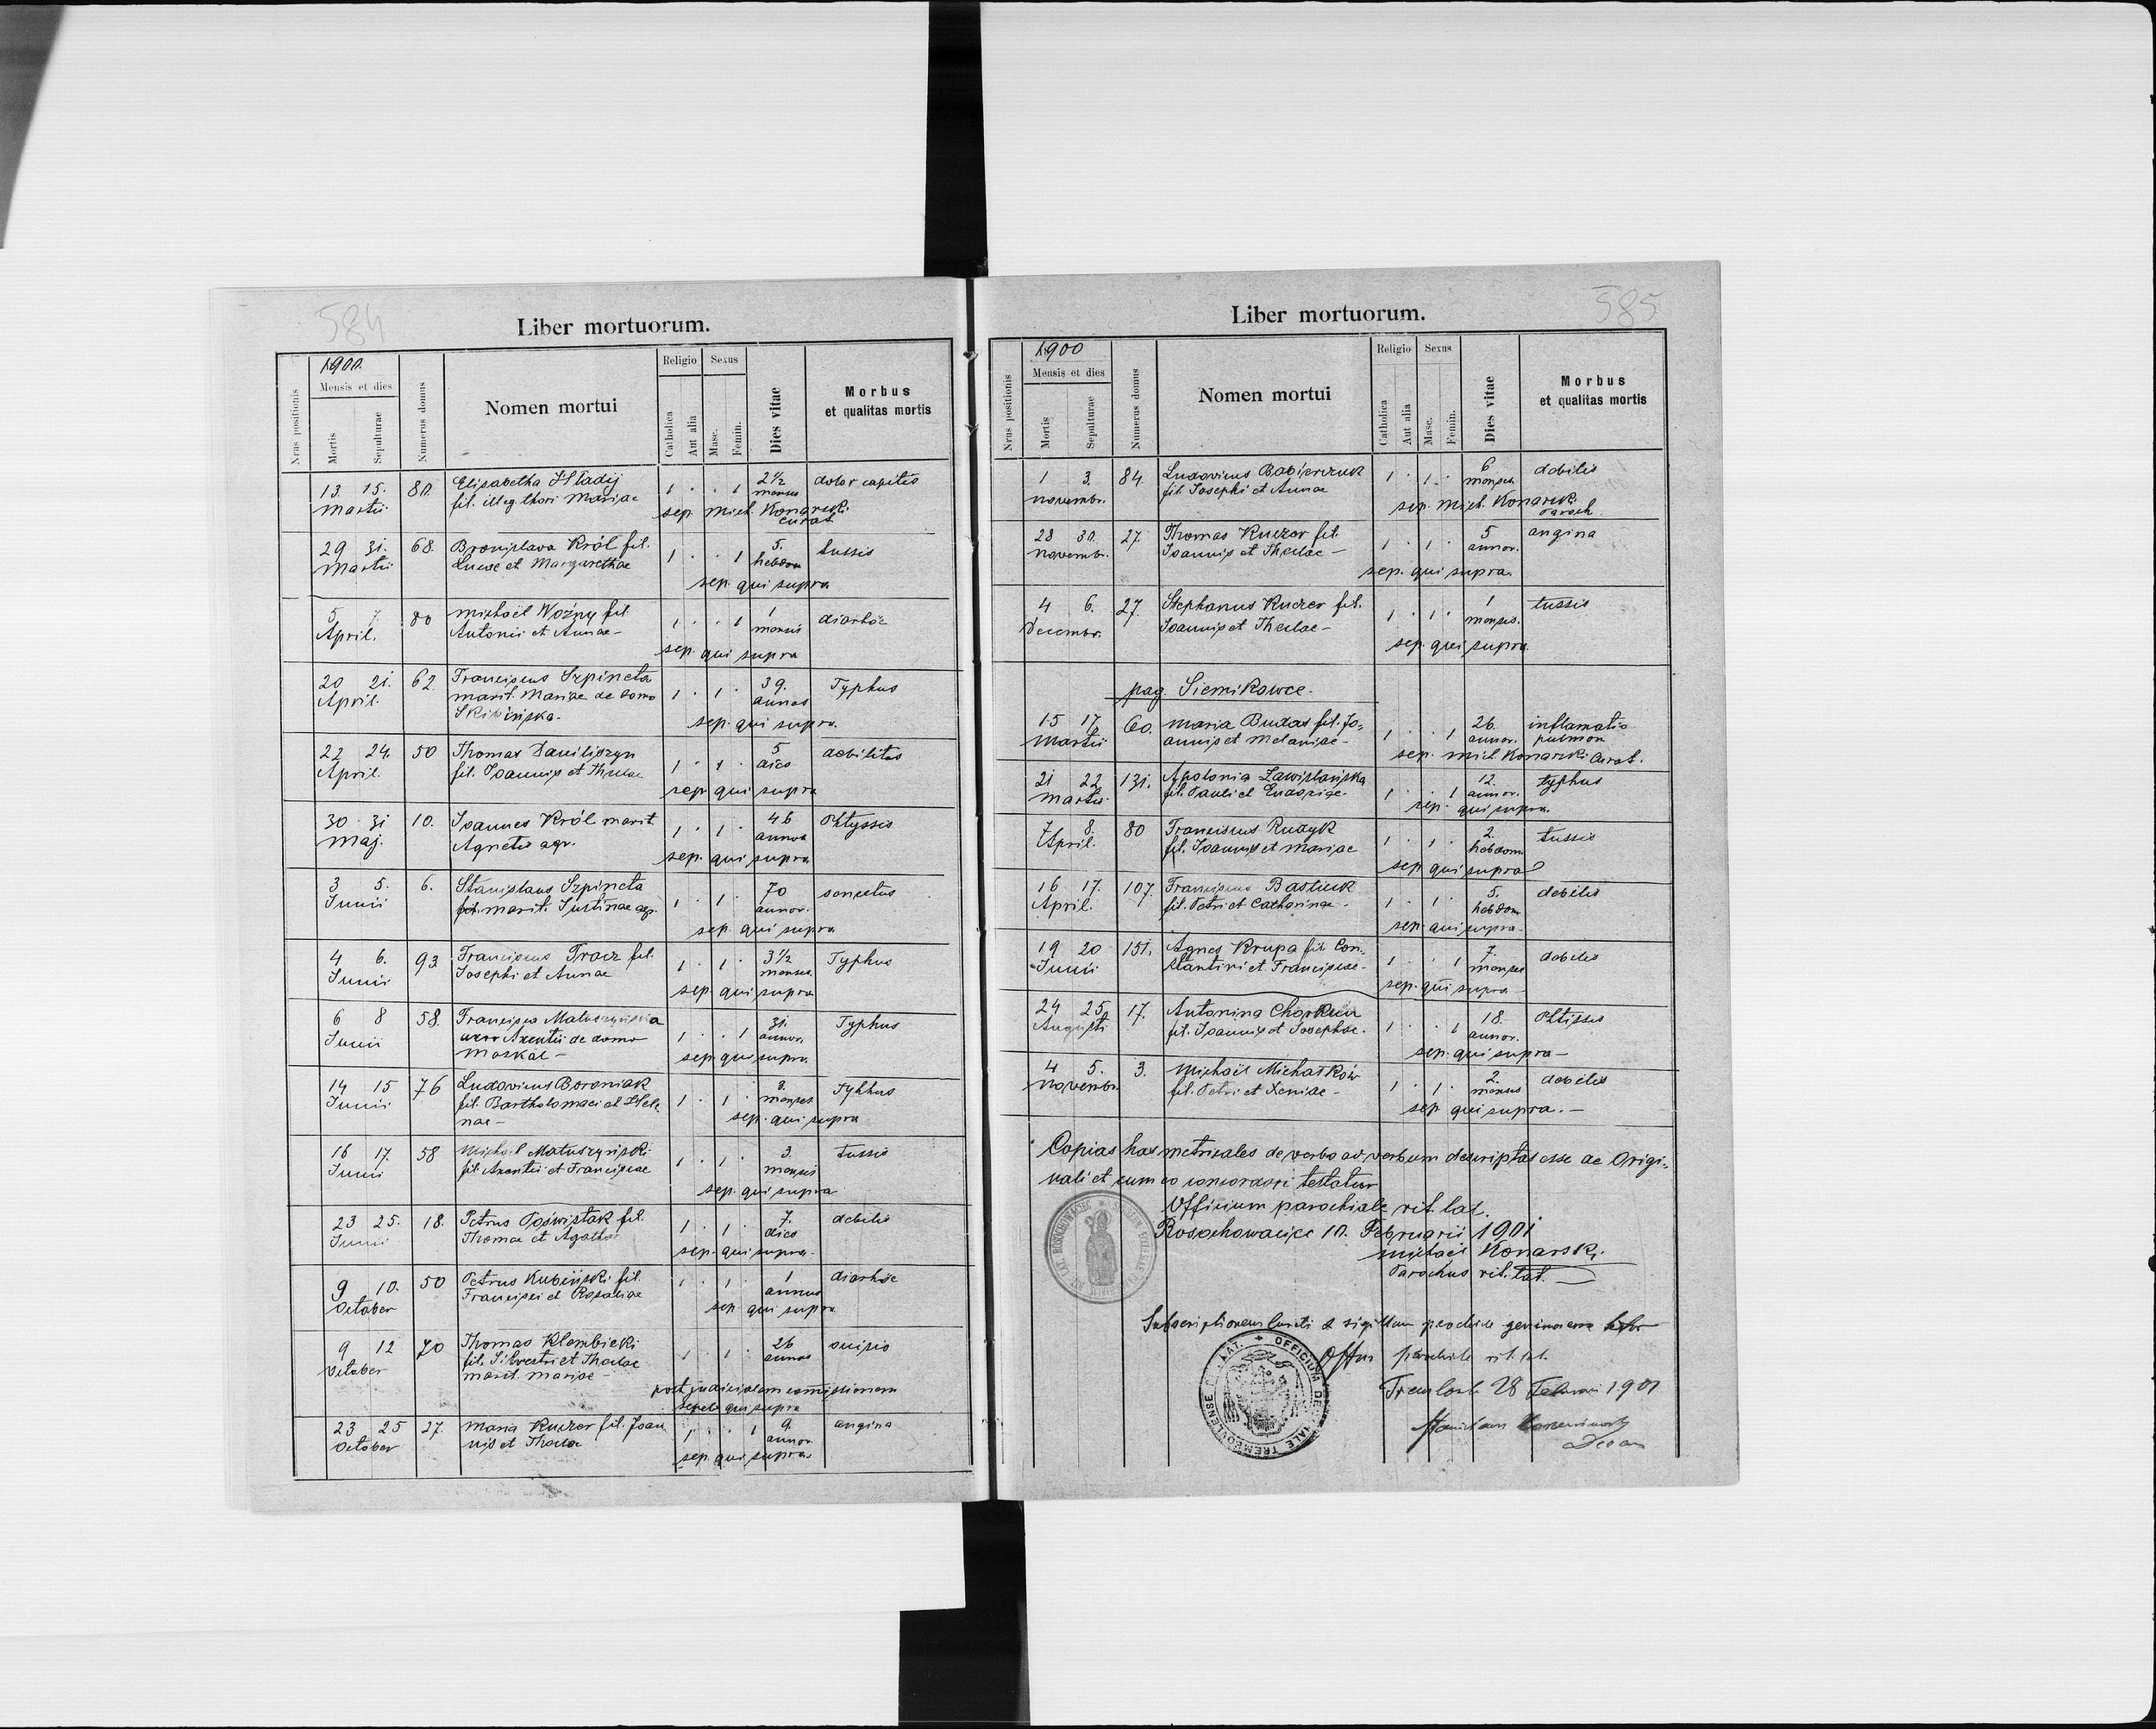 584
Liber mortuorum.
1900.
Nrus positionis
Mensis et dies
Mortis
Sepulturae
Numerus domus
Nomen mortui
Religio
Catholica
Aut alia
Sexus
Masc.
Femin.
Dies vitae
Morbus
et qualitas mortis
13. 15. 80. Elisabetha Hladij 1 . . 1 2½ dolor capitis
Martii fil. illeg. thori Mariae menses
sep. Mich. Konarski
curat.
29 31. 68. Bronislava Król fil. 1 . . 1 5. tussis
Martii Lucae et Margarethae hebdom
sep. qui supra
5 7 80 Michaël Woźny fil. 1 . . 1 1 diarhöe
April. Antonii et Annae - mensis
sep. qui supra
20 21. 62. Franciscus Szpineta 1 . 1 . 39. Typhus
April. marit. Mariae de domo annos
Skibińska -
sep. qui supra.
22 24. 50 Thomas Daniliszyn 1 . 1 . 5 debilitas
April. fil. Joannis et Theclae dies
sep. qui supra
30 31 10. Joannes Król marit. 1 . 1 . 46 Phtyssis
Maj. Agnetis agr. annos
sep. qui supra
3 5. 6. Stanislaus Szpineta 1 . 1 . 70 senectus
Junii marit. Justinae agr. annor.
sep. qui supra
4 6. 93 Franciscus Tracz fil. 1 . 1 . 3½ Typhus
Junii Josephi et Annae menses
sep. qui supra
6 8 58. Francisca Matuszyńska 1 . . 1 31. Typhus
Junii uxor Axentii de domo annor.
Moskal -
sep. qui supra
14 15 76 Ludovicus Boroniak 1 . 1 . 8. Tyhhus
Junii fil. Bartholomaei et Hele menses
nae -
sep. qui supra
16 17. 58 Michael Matuszyński 1 . 1 . 3. tussis
Junii fil. Axentii et Franciscae menses
sep. qui supra
23 25. 18. Petrus Poświstak fil. 1 . 1 . 7. debilis
Junii Thomae et Agatha dies
sep. qui supra.
9 10. 50 Petrus Kubiński fil. 1 . 1 . 1 diarhöe
October Francisci et Rosaliae annus
sep. qui supra
9 12 70 Thomas Klembicki 1 . 1 . 26
October fil. Silvestri et Theclae annos
marit. Mariae -
post judicialem commissionem
sepel. qui supra
23 25 27. Maria Kuczer fil. Joan 1 . . 1 9. angina
October nis et Thecla annor.
sep. qui supra
585
Liber mortuorum.
1900
Nrus positionis
Mensis et dies
Mortis
Sepulturae
Numerus domus
Nomen mortui
Religio
Catholica
Aut alia
Sexus
Masc.
Femin.
Dies vitae
Morbus
et qualitas mortis
1 3. 84. Ludovicus Babierczuk 1 . 1 . 6 debilis
novembr. fil. Josephi et Annae menses
sep. Mich. Konarski
Paroch.
28 30. 27. Thomas Kuczer fil. 1 . 1 . 5 angina
novembr. Joannis et Theclae - annor.
sep. qui supra.
4 6. 27. Stephanus Kuczer fil. 1 . 1 . 1 tussis
Decembr. Joannis et Theclae - mensis.
sep. qui supra
pag. Siemikowce.
15 17 60. Maria Budas fil. Jo- 1 . . 1 26. inflamatio
Martii annis et Melaniae - annor. pulmon
sep. Mich Konarski Curat.
21 22 131. Apolonia Zawislańska 1 . . 1 12. typhus
Martii fil. Pauli et Eudoxiae - annor.
sep. qui supra.
7 8. 80 Franciscus Rudyk 1 . 1 . 2. tussis
April. fil. Joannis et Mariae hebdom.
sep. qui supra
16 17. 107. Franciscus Basliuk 1 . 1 . 5. debilis
April. fil. Petri et Catharinae - hebdom
sep. qui supra -
19 20 151. Agnes Krupa fil. Con- 1 . . 1 7. debilis
Junii stantini et Franciscae - menses
sep. qui supra -
24 25 17. Antonina 1 . . 1 18. Phtissis
Augusti fil. Joannis et Josephae. annor.
sep. qui supra -
4 5. 3. Michaël Michatków 1 . 1 . 2. debilis
novembr. fil. Petri et Xeniae - menses
sep. qui supra. -
Copias has metricales de verbo ad verbum descriptas esse de Origi-
nali et cum eo concordari testatur
Officium parochiale rit. lat.
Rosochowaciec 10. Februarii 1901
Michael Konarski
Parochus rit. lat.
Subscriptionem Curati & sigillum parochiale genuinum esse
Offium parochiale rit. lat.
28 Februari 1901
Decan
OFFICIUM DECANALE TREMBOVLENSE R. LAT.